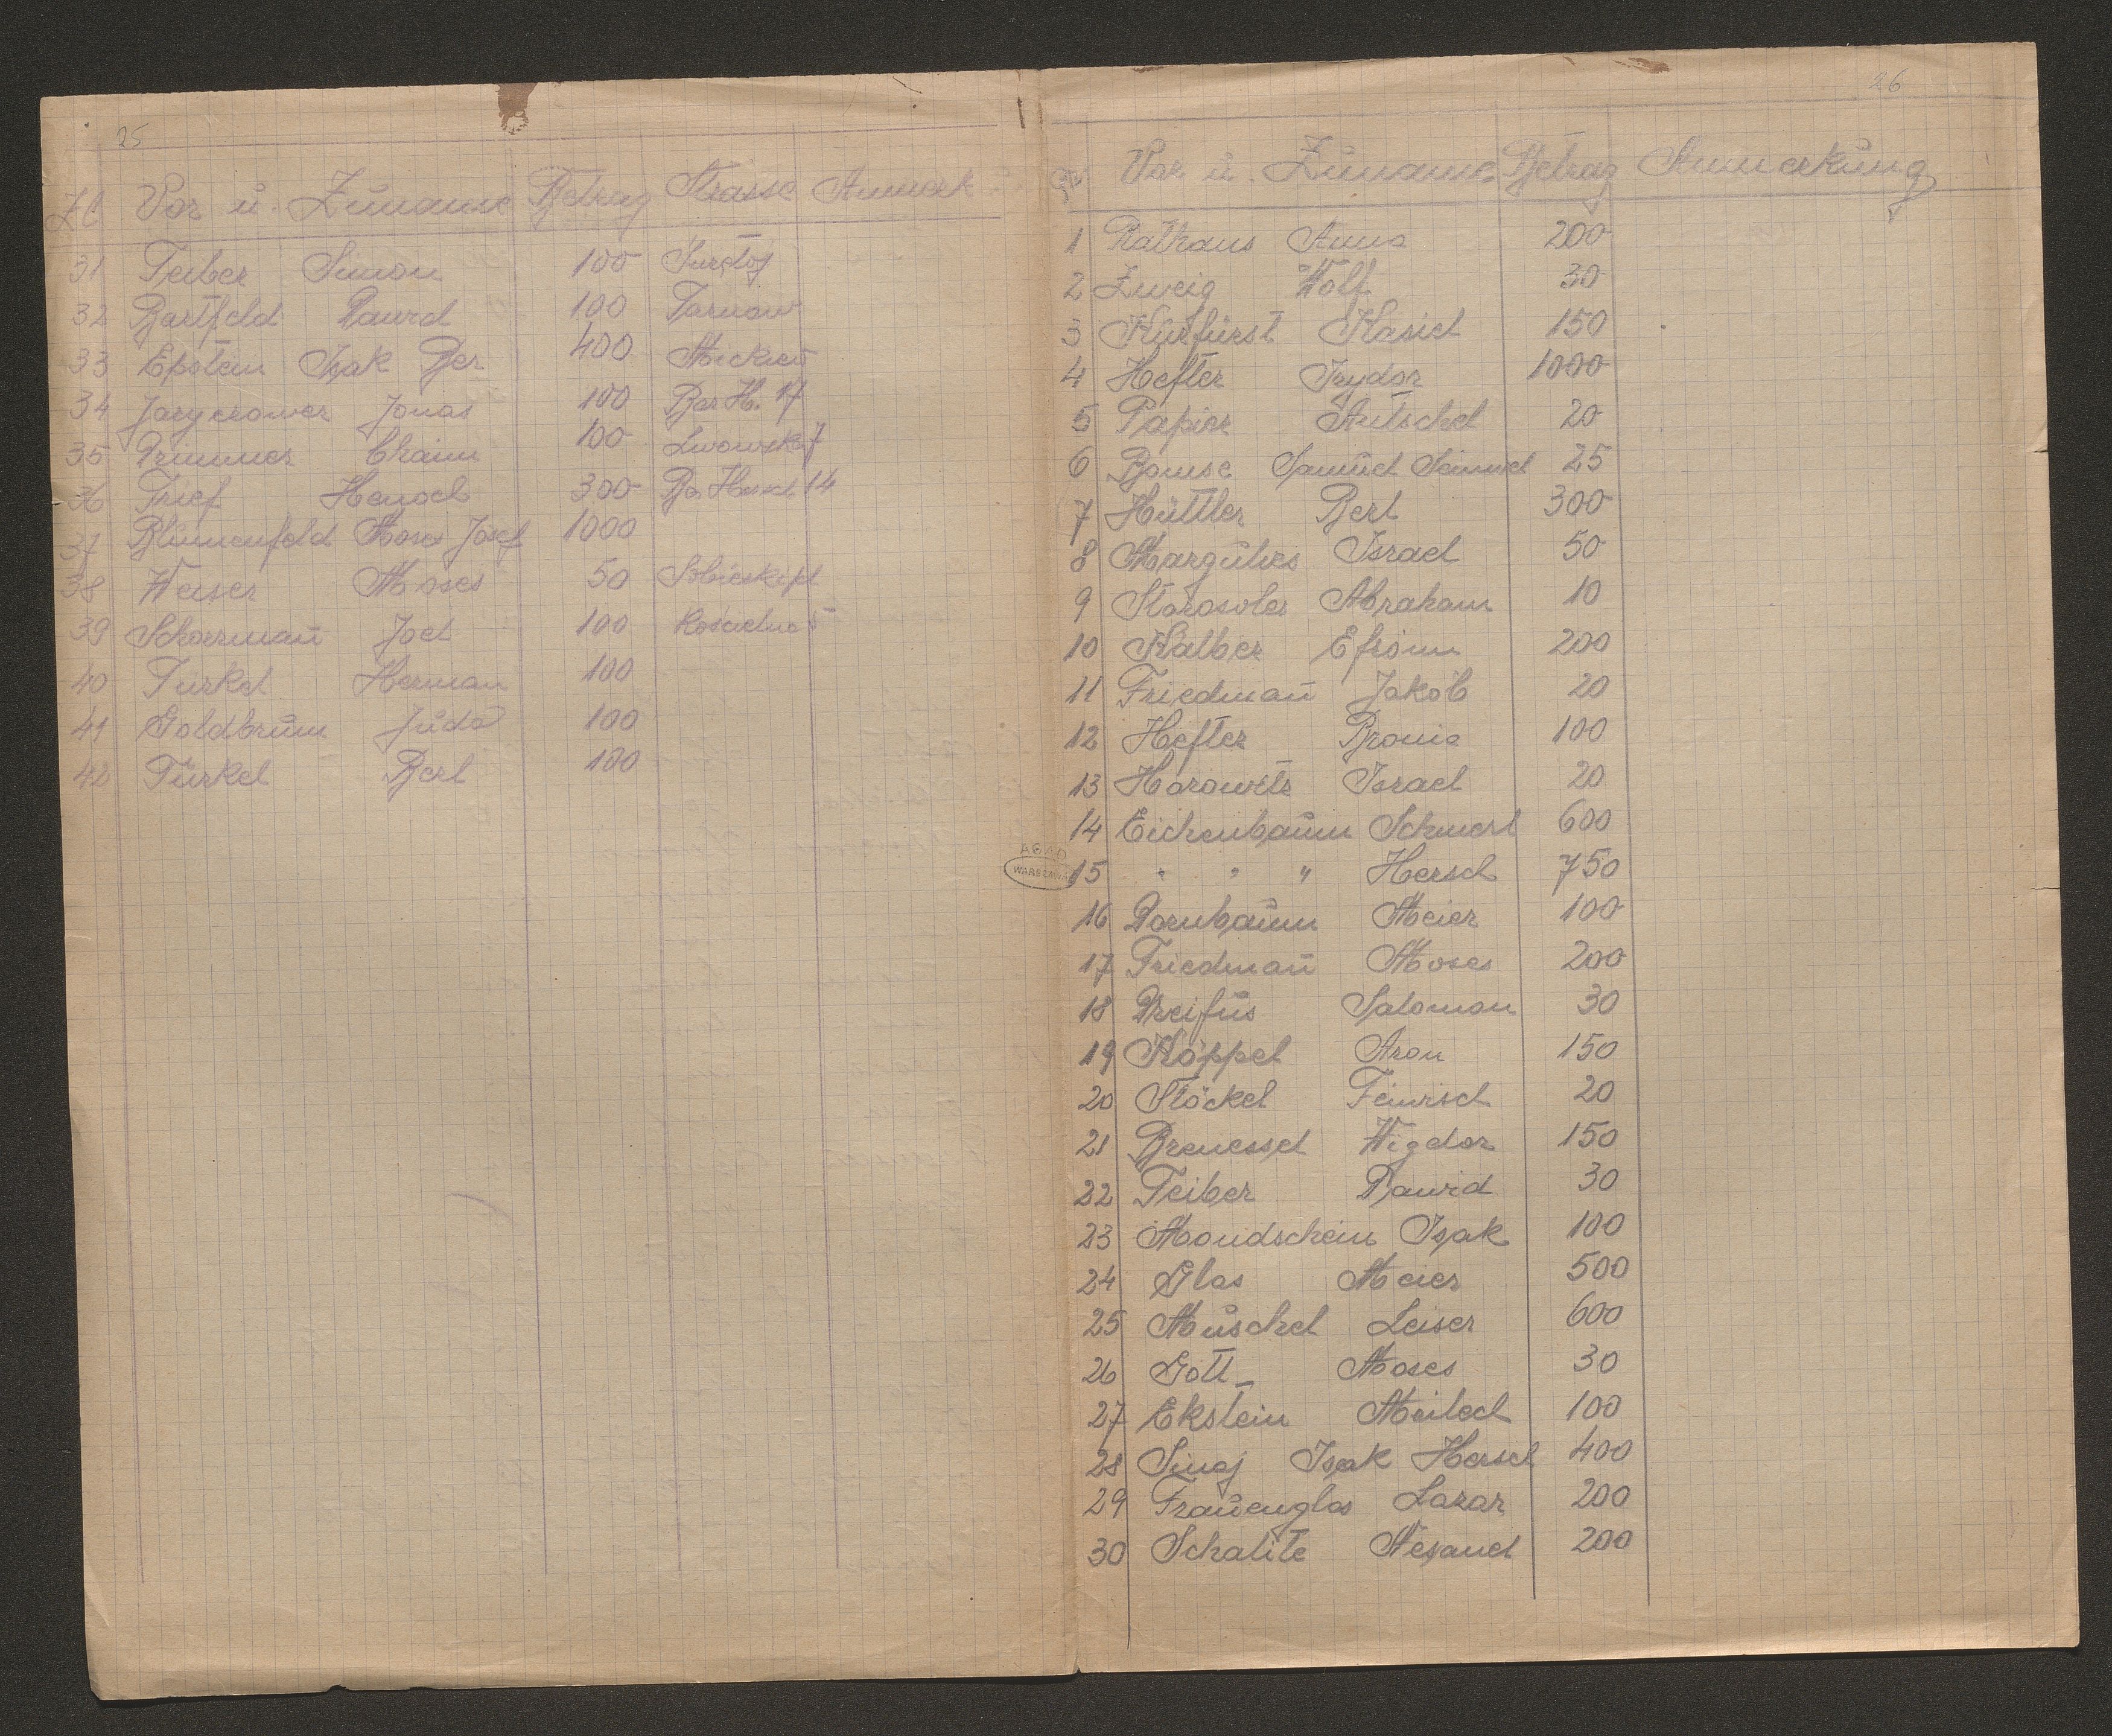 25
Zl Vor u. Zuname Betrag Strasse Anmerk
31 Teiber Simon 100
32 Bartfeld Dawid 100 Tarnow
33 Epstein Isak Ber 400 Mickiew
34 Jonas 100 Ber H. 17
35 Brimmer Chaim 100 Lwowska 7
36 Trief Henoch 300 Ber Hersch 14
37 Blumenfeld Moses Josef 1000
38 Weiser Moses 50
39 Scharman̄ Joel 100
40 Turkel Herman 100
41 Goldbrum Juda 100
42 Türkel Berl 100
26
Vor u. Zuname Betrag Anmerkung
1 Rathaus Anna 200
2 Zweig Wolf 30
3 Kurfürst Kasiel 150
4 Hefter Izydor 1000
5 Papier Antschel 20
6 Bomse Samuel Seinwel 25
7 Hüttler Berl 300
8 Margulies Israel 50
9 Starosoler Abraham 10
10 Kalber Efroim 200
11 Friedman̄ Jakob 20
12 Hefter Bronia 100
13 Horowitz Israel 20
14 Eichenbaum Schmerl 600
AGAD
WARSZAWA
15 " " " Hersch 750
16 Dornbaum Meier 100
17 Friedman̄ Moses 200
18 Dreifus Salomon 30
19 Köppel Aron 150
20 Stöckel 20
21 Brenessel Wigdor 150
22 Teiber Dawid 30
23 Mondschein Isak 100
24 Glas Meier 500
25 Muschel Leiser 600
26 Gott Moses 30
27 Ekstein Meilech 100
28 Sinaj Isak Hersch 400
29 Frauenglas Lazar 200
30 Schalite 200